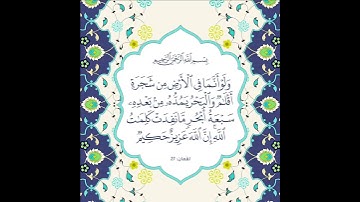 بِسْمِ اللَّهِ الرَّحْمَٰنِ الرَّحِيمِ
وَلَوْ أَنَّمَا فِي الْأَرْضِ مِن شَجَرَةٍ
أَقْلَامٌ وَالْبَحْرُ يَمُدُّهُ مِن بَعْدِهِ
سَبْعَةُ أَبْحُرٍ مَّا نَفِدَتْ كَلِمَاتُ
اللَّهِ إِنَّ اللَّهَ عَزِيزٌ حَكِيمٌ
لقمان: 27